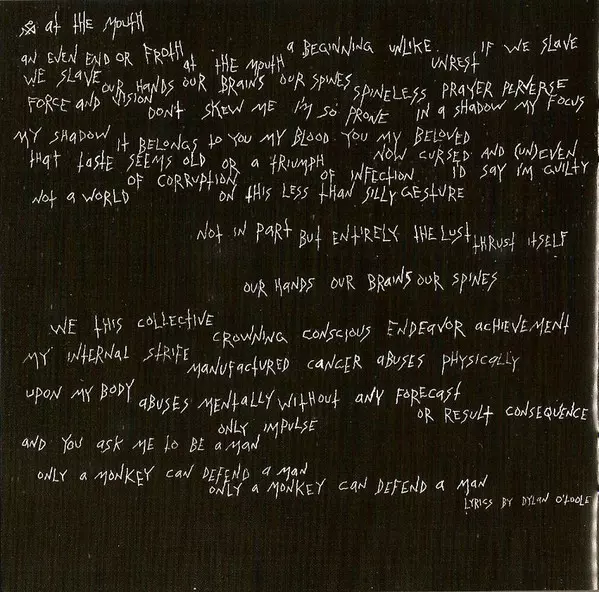 at the mouth
an even end or froth at the mouth a beginning unlike unrest if we slave
we slave our hands our brains our spines spineless prayer perverse
force and vision don't skew me i'm so prone in a shadow my focus
my shadow it belongs to you my blood you my beloved
that taste seems old or a triumph now cursed and (un)even
of corruption of infection i'd say i'm guilty
not a world on this less than silly gesture
not in part but entirely the lust thrust itself
our hands our brains our spines
we this collective crowning conscious endeavor achievement
my internal strife manufactured cancer abuses physically
upon my body abuses mentally without any forecast
or result consequence
only impulse
and you ask me to be a man
only a monkey can defend a man
only a monkey can defend a man
lyrics by dylan o'toole